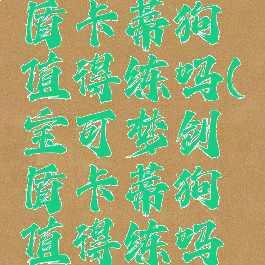 盾卡蒂狗
值得练吗(
宝可梦创
盾卡蒂狗
值得练吗